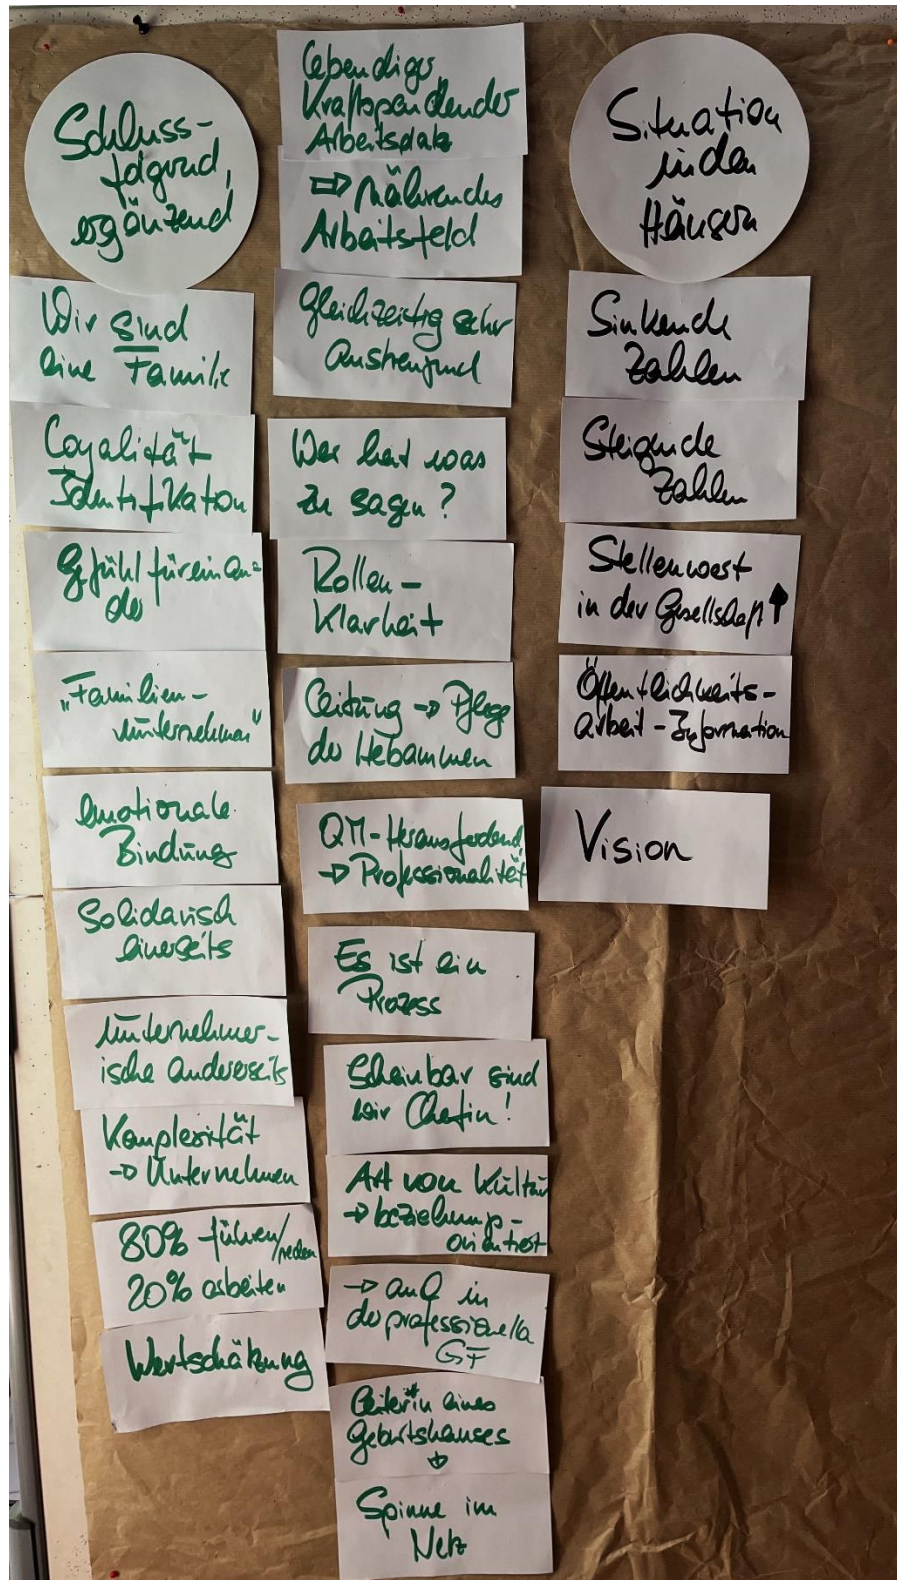 Schluss-
folgernd,
ergänzend
Wir sind
eine Familie
Loyalität
Identifikation
Gefühl füreinan-
der
"Familien-
unternehmen"
emotionale
Bindung
Solidarisch
einerseits
Unternehmer-
ische andererseits
Komplexität
→ Unternehmen
80% führen/reden
20% arbeiten
Wertschätzung
Lebendiger,
Kraftspendender
Arbeitsplatz
⇒ Nährendes
Arbeitsfeld
gleichzeitig sehr
anstrengend
Wer hat was
zu sagen?
Rollen-
Klarheit
Leitung → Pflege
der Hebammen
QM-Herausfordernd,
→ Professionalität
Es ist ein
Prozess
Scheinbar sind
wir Chefin!
Art von Kultur
→ beziehungs-
orientiert
→ auch in
der professionellen
GF
Leiter*in eines
Geburtshauses
↓
Spinne im
Netz
Situation
in den
Häusern
Sinkende
Zahlen
Steigende
Zahlen
Stellenwert
in der Gesellschaft ↑
Öffentlichkeits-
arbeit - Information
Vision